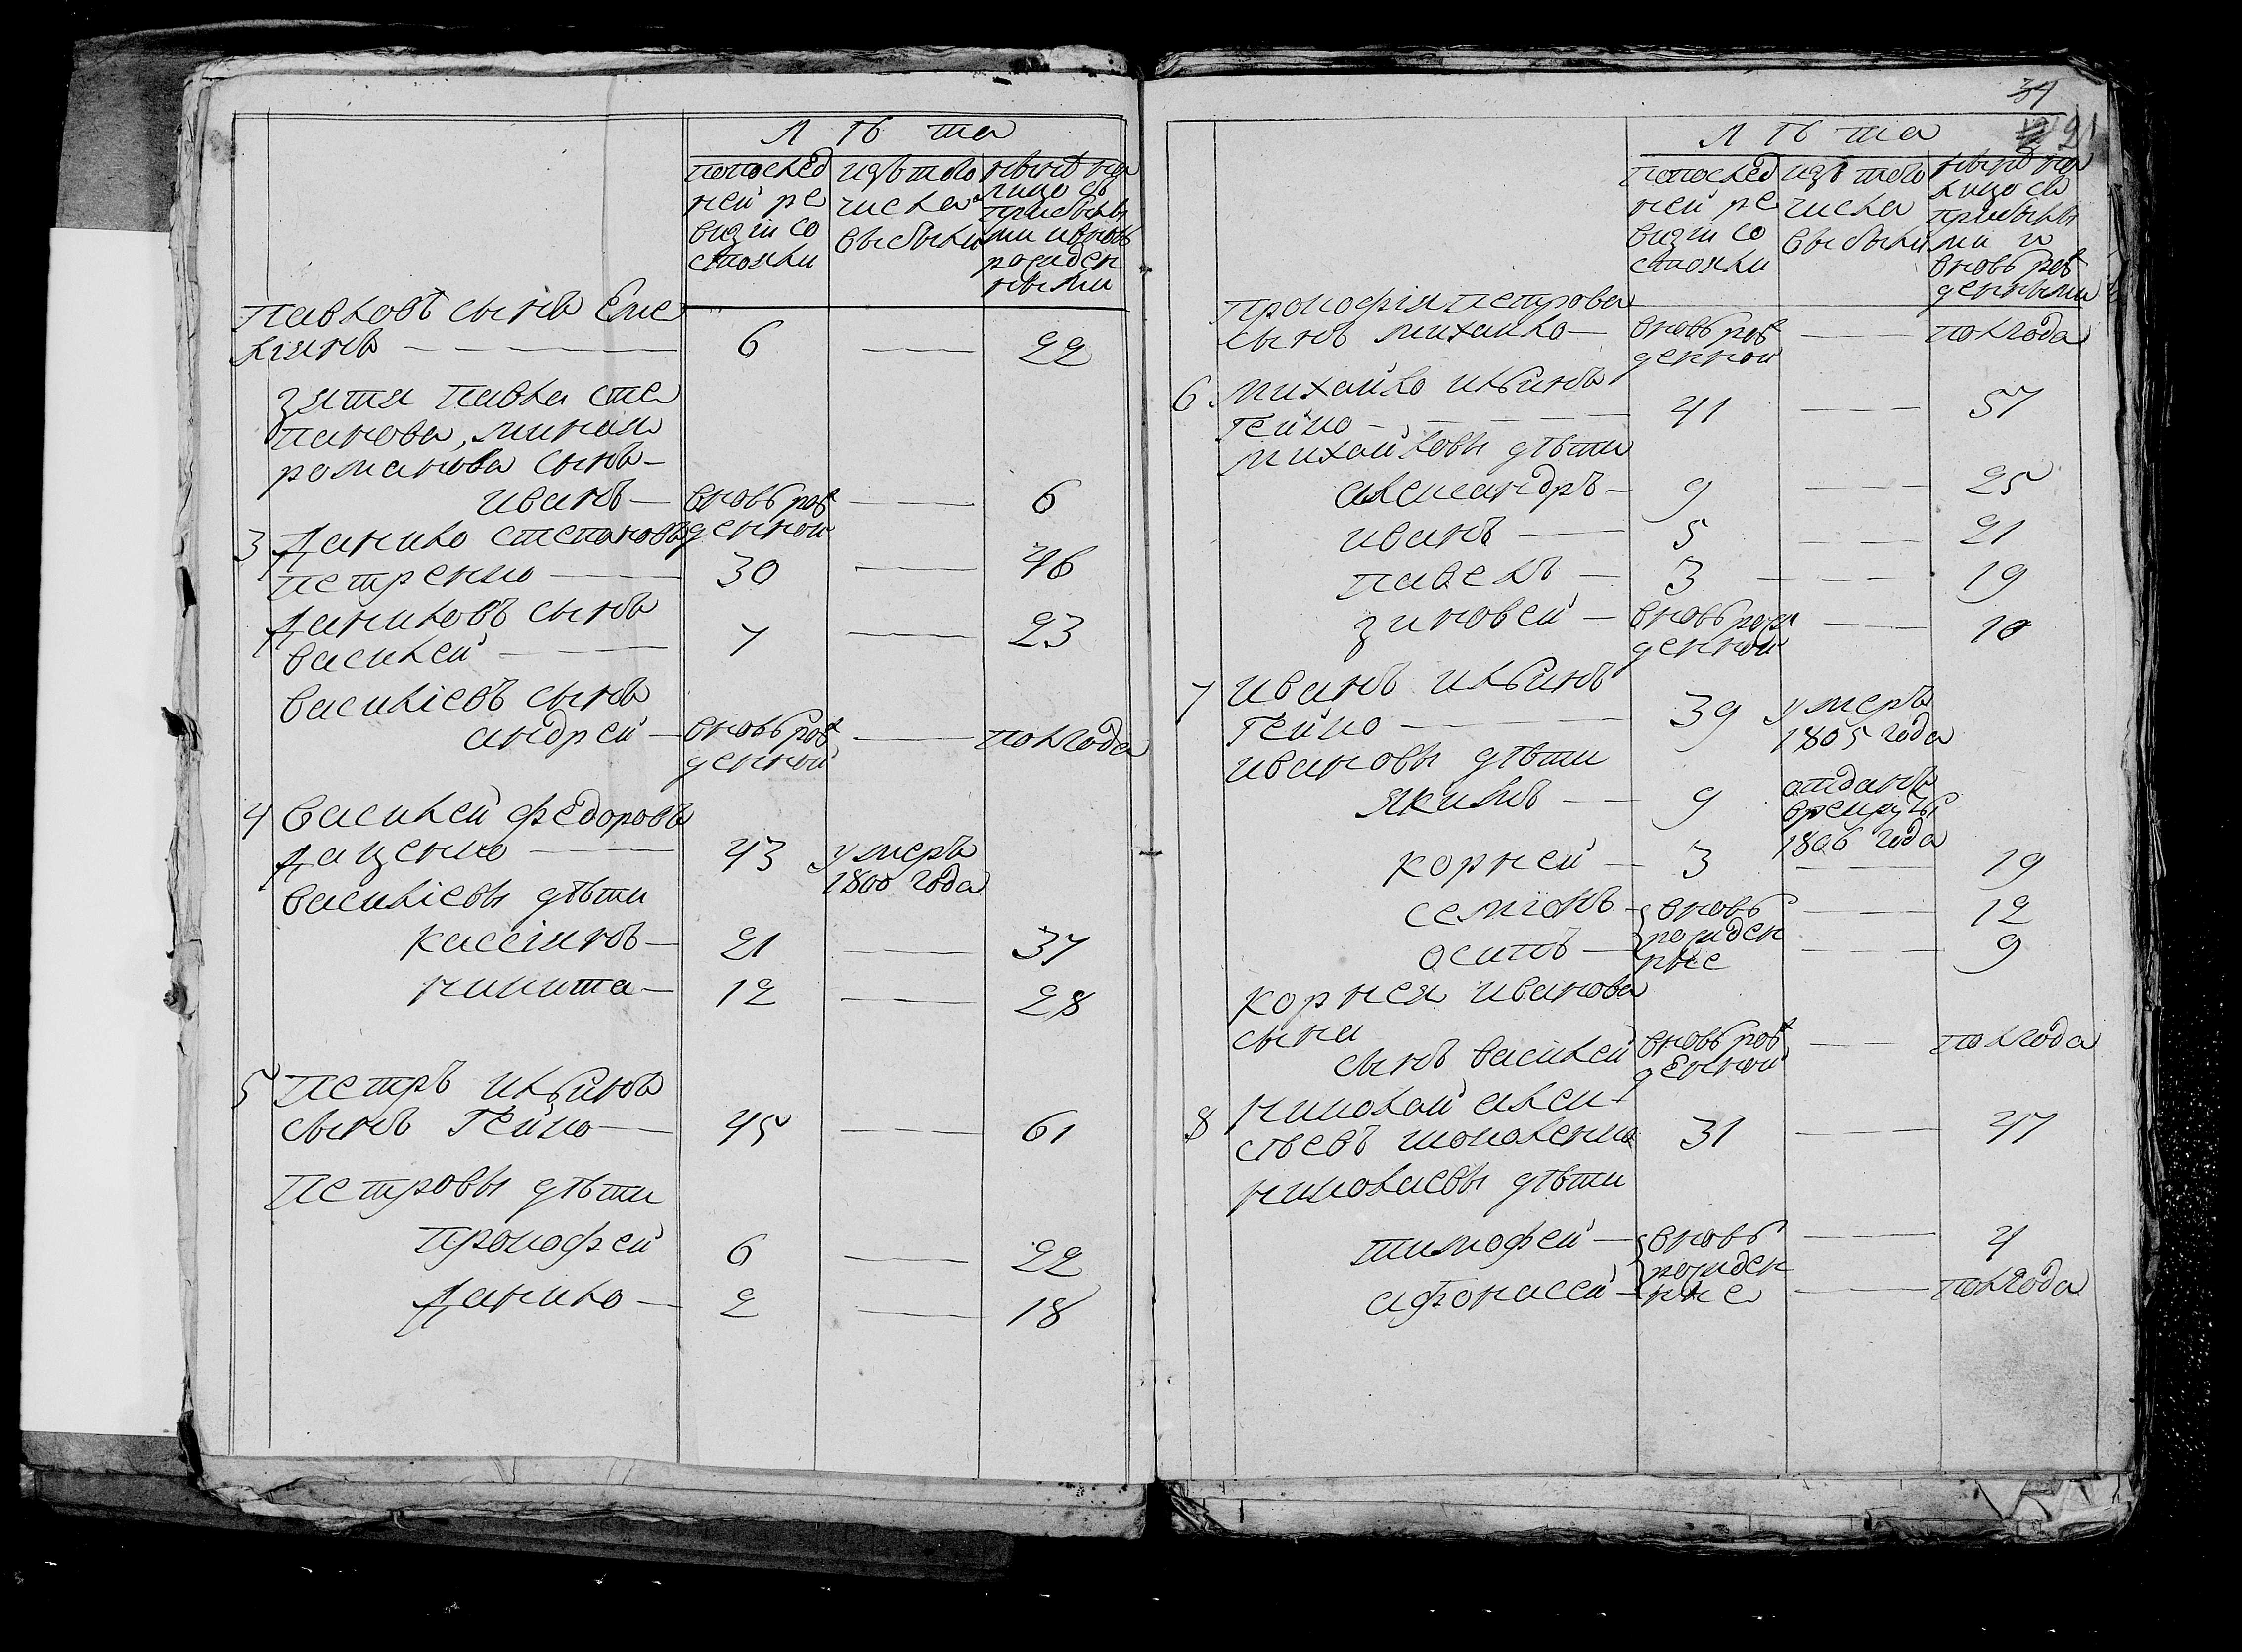 Л ѣ та
попослед
ней ре
визіи со
стояли
изъ того
числа
выбыли
ныне на
лицо съ
прибылы
ми и вновь
рожден
ными
Павловъ сынъ Еме
ліянъ — 6 — 22
зятя Павла Сте
панова, Минаи
романова сынъ —
иванъ — вновь рож
денной — 6
3 Данило степановъ
Петренко — 30 — 46
Даниловъ сынъ
василей — 7 — 23
василіевъ сынъ
андрей — вновь рож
денной — полгода
4 василей федоровъ
Даценко — 43 умеръ
1800 года
василіевы дѣти
кассіянъ — 21 — 37
никита — 12 — 28
5 Петръ ильинъ
сынъ Гейко — 45 — 61
Петровы дѣти
прокофей 6 — 22
Данило — 2 — 18
34
21
Л ѣ та
попослед
ней ре
визіи со
стояли
изъ того
числа
выбыли
ныне на
лицо съ
прибылы
ми и
вновь рож
денными
прокофія петрова
сынъ михайло — вновь рож
денной — полгода
6 михайло ильинъ
Гейко — 41 — 57
михайловы дѣти
александръ — 9 — 25
иванъ — 5 — 21
павелъ — 3 — 19
зиновей — вновь рож
денной — 10
7 иванъ ильинъ
Гейко — 39 умеръ
1805 года
ивановы дѣти
якимъ — 9 отданъ
врекруты
1806 года
корней — 3 — 19
семіонъ — вновь — 12
осипъ — рожден
ные — 9
корнея иванова
сына
сынъ василей вновь рож
денной — полгода
8 николай алек
сѣевъ 31 — 47
николаевы дѣти
тимофей — вновь — 4
рожден
афонасей — ные — полгода